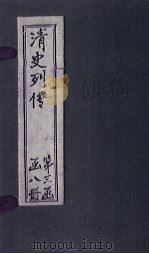 清史列傳
第三函
函八冊
www.duxiu.com